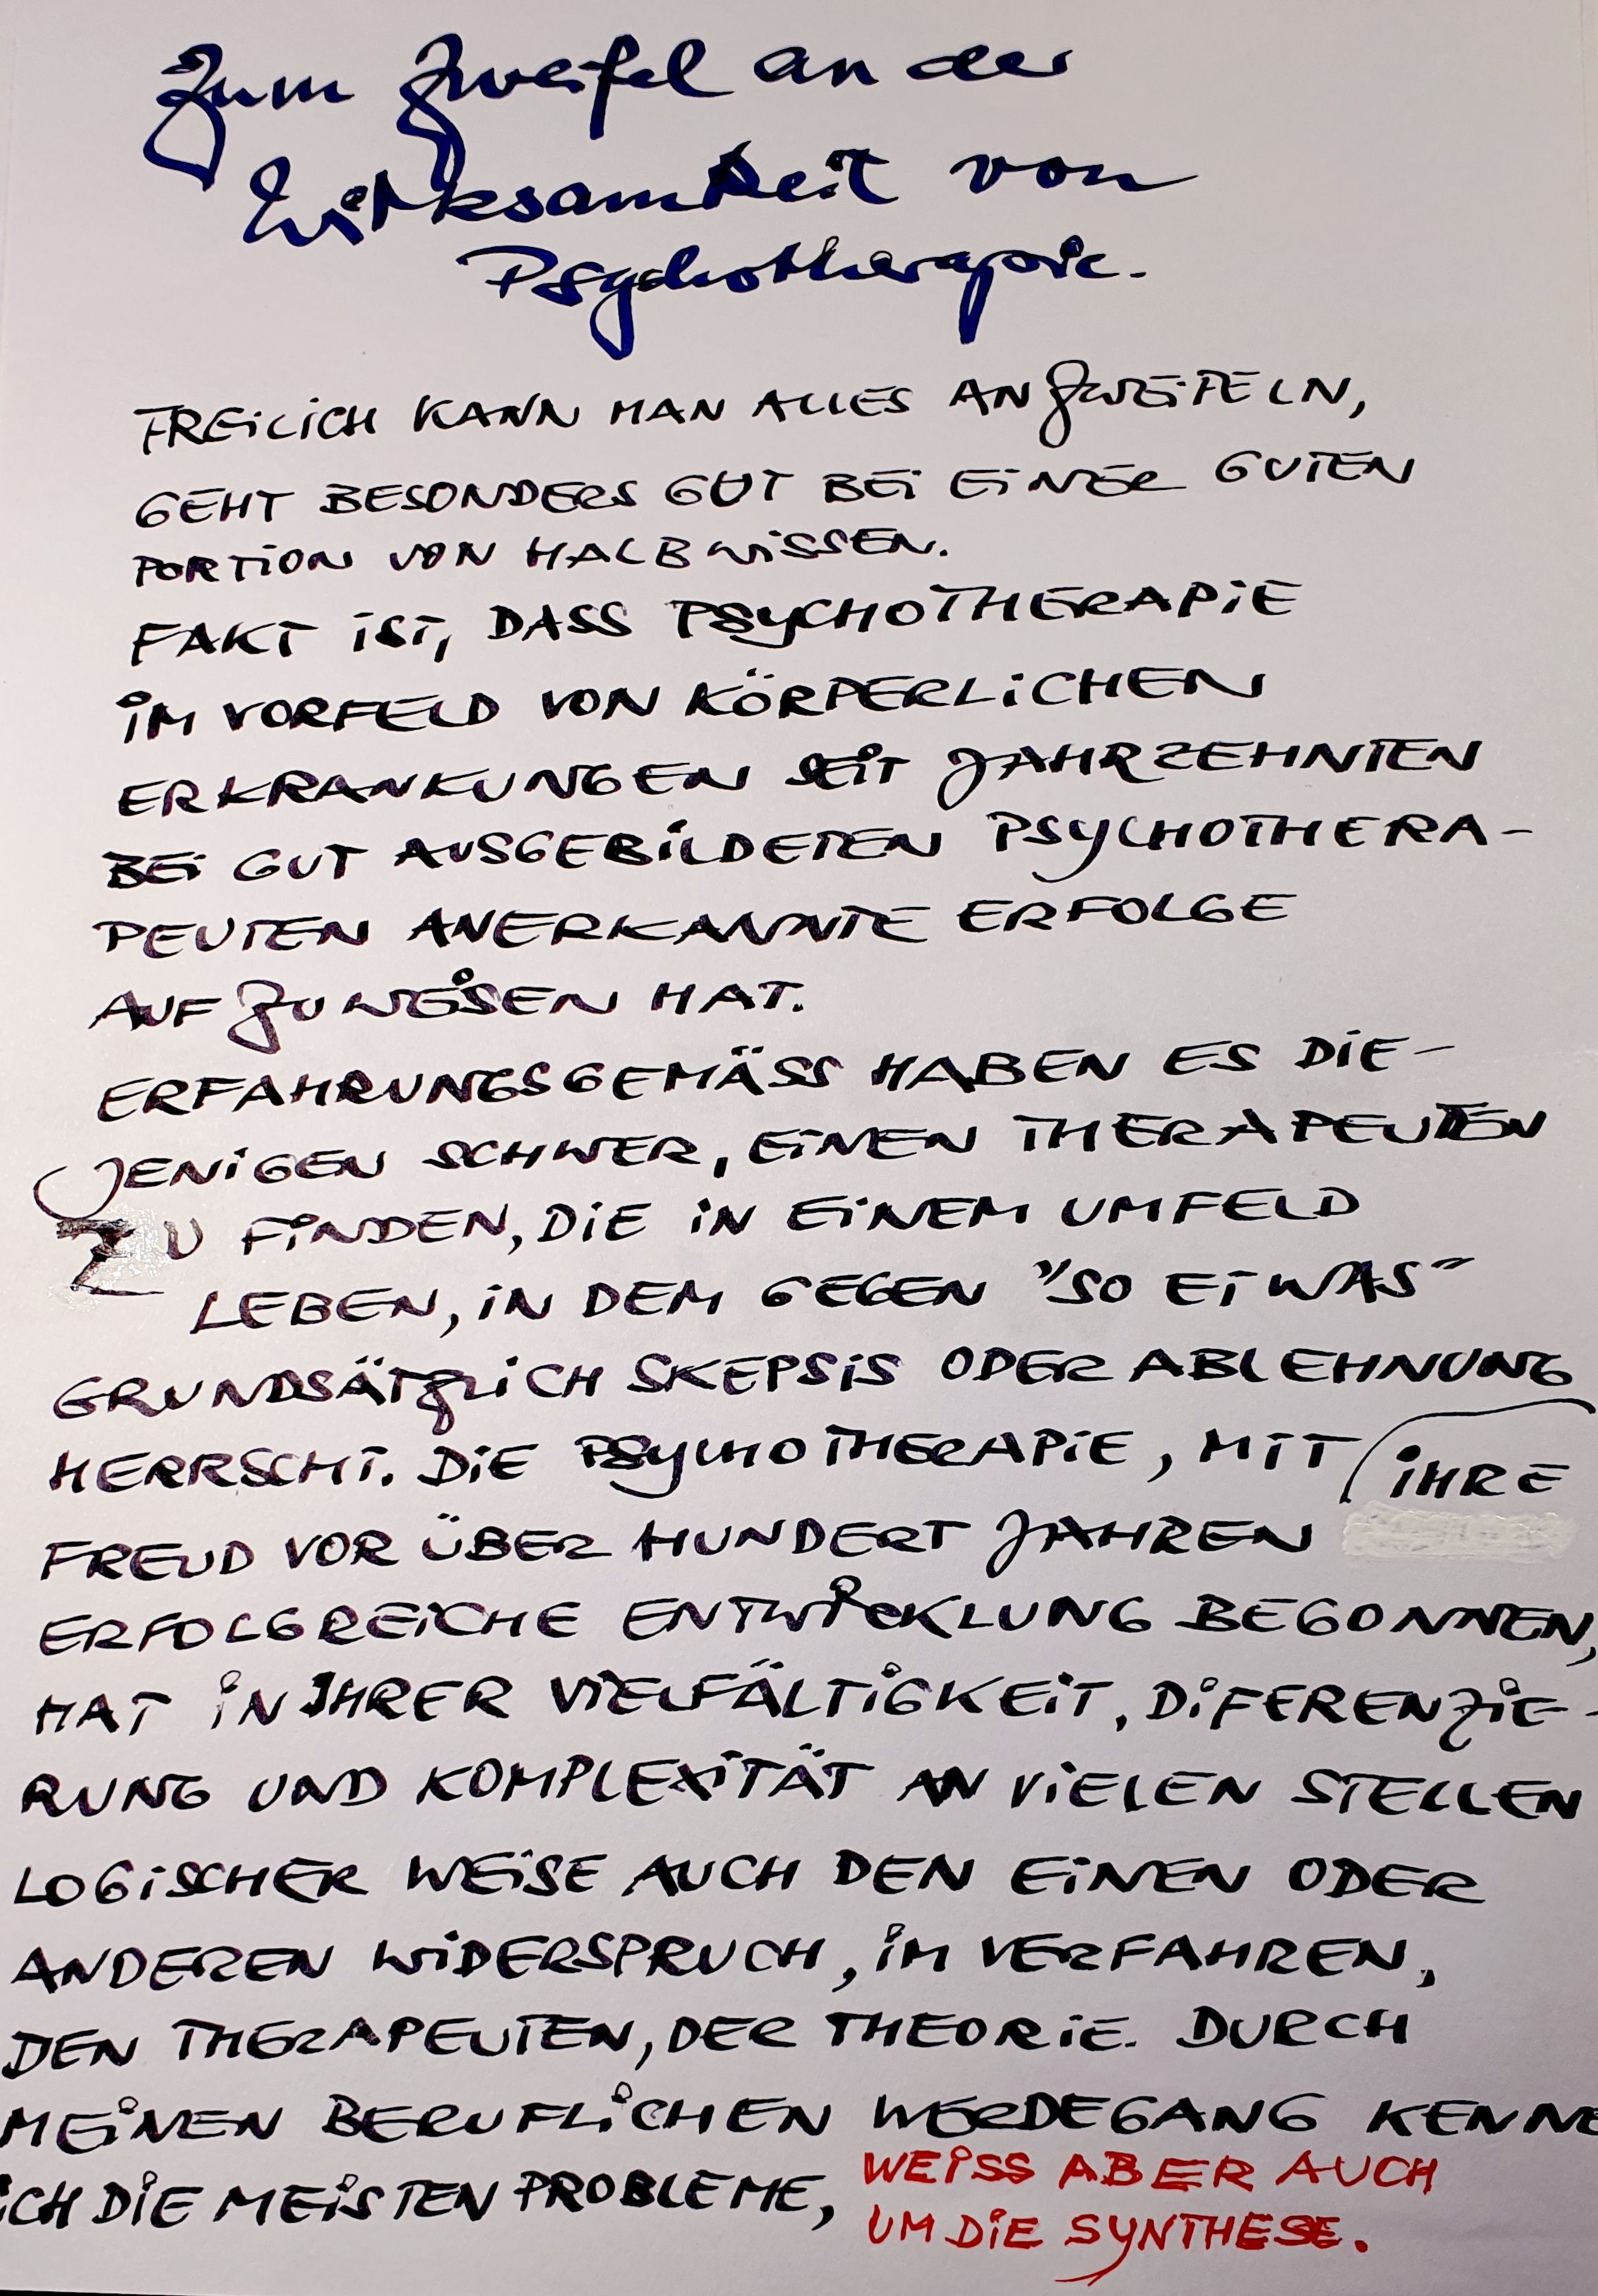 Zum Zweifel an der
Wirksamkeit von
Psychotherapie.
FREILICH KANN MAN ALLES ANZWEIFELN,
GEHT BESONDERS GUT BEI EINER GUTEN
PORTION VON HALBWISSEN.
FAKT IST, DASS PSYCHOTHERAPIE
IM VORFELD VON KÖRPERLICHEN
ERKRANKUNGEN SEIT JAHRZEHNTEN
BEI GUT AUSGEBILDETEN PSYCHOTHERA-
PEUTEN ANERKANNTE ERFOLGE
AUFZUWEISEN HAT.
ERFAHRUNGSGEMÄSS HABEN ES DIE-
JENIGEN SCHWER, EINEN THERAPEUTEN
ZU FINDEN, DIE IN EINEM UMFELD
LEBEN, IN DEM GEGEN "SO ETWAS"
GRUNDSÄTZLICH SKEPSIS ODER ABLEHNUNG
HERRSCHT. DIE PSYCHOTHERAPIE, MIT
FREUD VOR ÜBER HUNDERT JAHREN IHRE
ERFOLGREICHE ENTWICKLUNG BEGONNEN,
HAT IN IHRER VIELFÄLTIGKEIT, DIFERENZIE-
RUNG UND KOMPLEXITÄT AN VIELEN STELLEN
LOGISCHER WEISE AUCH DEN EINEN ODER
ANDEREN WIDERSPRUCH, IM VERFAHREN,
DEN THERAPEUTEN, DER THEORIE. DURCH
MEINEN BERUFLICHEN WERDEGANG KENNE
ICH DIE MEISTEN PROBLEME, WEISS ABER AUCH
UM DIE SYNTHESE.